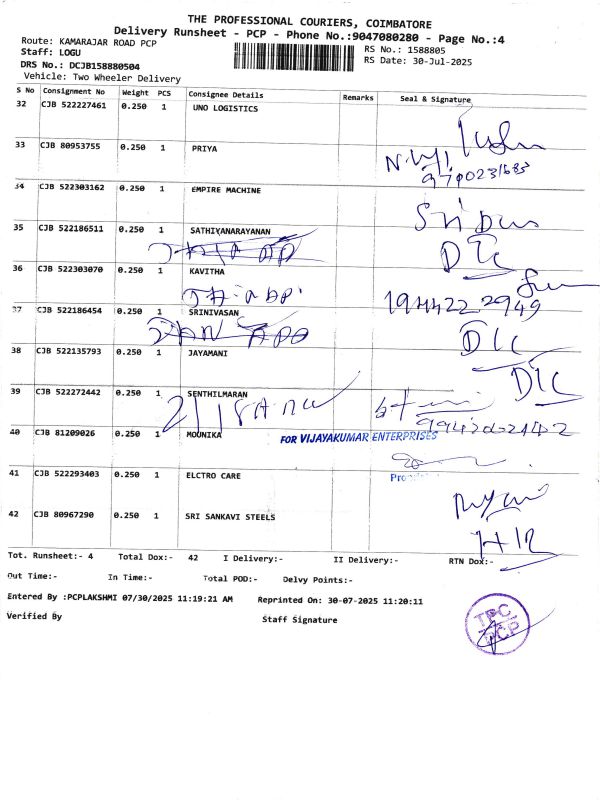 THE PROFESSIONAL COURIERS, COIMBATORE
Delivery Runsheet - PCP - Phone No.:9047080280 - Page No.:4
Route: KAMARAJAR ROAD PCP
RS No.: 1588805
Staff: LOGU
RS Date: 30-Jul-2025
DRS No.: DCJB158880504
Vehicle: Two Wheeler Delivery
S No Consignment No Weight PCS Consignee Details Remarks Seal & Signature
32 CJB 522227461 0.250 1 UNO LOGISTICS
33 CJB 80953755 0.250 1 PRIYA
34 CJB 522303162 0.250 1 EMPIRE MACHINE
35 CJB 522186511 0.250 1 SATHIYANARAYANAN
DTC
36 CJB 522303070 0.250 1 KAVITHA
37 CJB 522186454 0.250 1 SRINIVASAN
38 CJB 522135793 0.250 1 JAYAMANI
39 CJB 522272442 0.250 1 SENTHILMARAN
40 CJB 81209026 0.250 1 MOUNIKA
FOR VIJAYAKUMAR ENTERPRISES
41 CJB 522293403 0.250 1 ELCTRO CARE
42 CJB 80967290 0.250 1 SRI SANKAVI STEELS
Tot. Runsheet:- 4 Total Dox:- 42 I Delivery:- II Delivery:- RTN Dox:-
Out Time:- In Time:- Total POD:- Delvy Points:-
Entered By :PCPLAKSHMI 07/30/2025 11:19:21 AM Reprinted On: 30-07-2025 11:20:11
Verified By Staff Signature
TPC
PCP